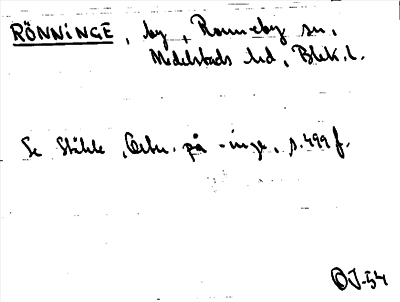 RÖNNINGE, by, Ronneby sn,
Medelstads hd, Blek.l.
Se Ståhle, Ortn. på -inge, s. 499 f.
OJ-54